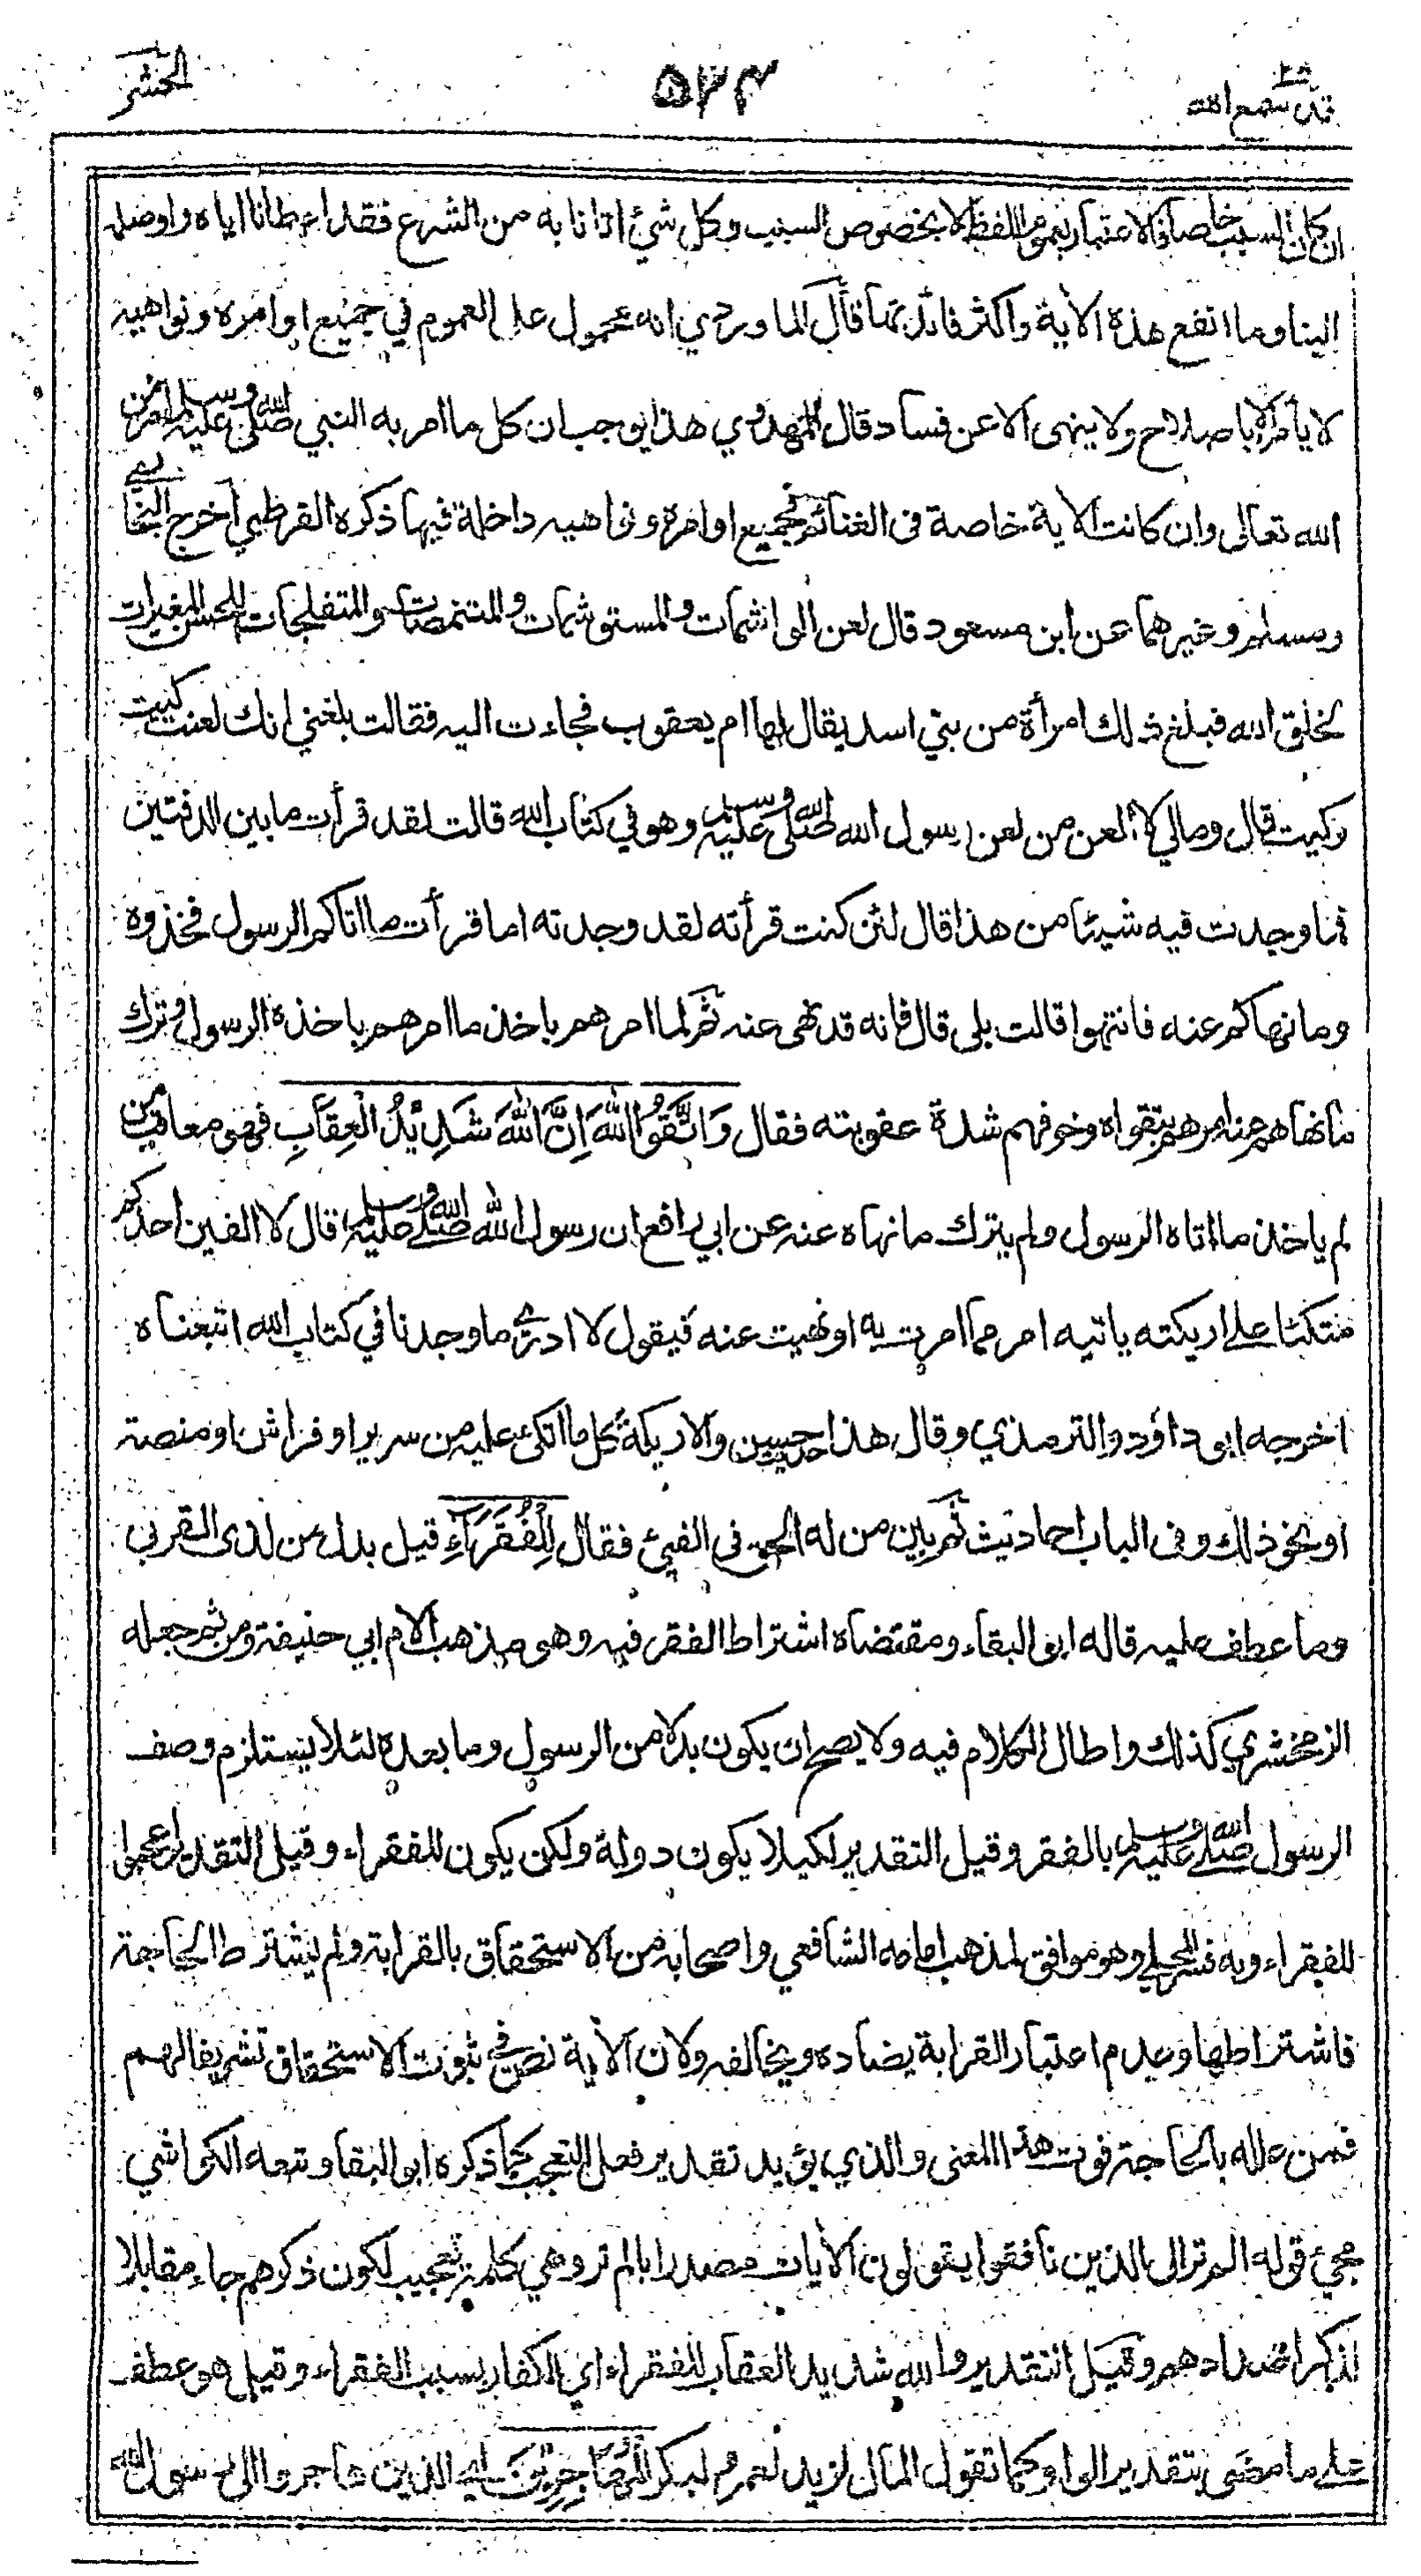 قد سمع الله ٢٨
٥٣٤
الحشر
ان كان السبب خاصا فالاعتبار بعموم اللفظ لا بخصوص السبب وكل شئ اتانا به من الشرع فقد اعطانا اياه واوصله
الينا وما انفع هذه الاية واكثر فائدتها قال الماوردي انه محمول على العموم في جميع اوامره ونواهيه
لا يأمر الا باصلاح ولا ينهى الا عن فساد قال المهدوي هذا يوجب ان كل ما امر به النبي صلى الله عليه وسلم امر من
الله تعالى وان كانت الاية خاصة في الغنائم فجميع اوامره ونواهيه داخلة فيها ذكره القرطبي اخرج البخاري
ومسلم وغيرهما عن ابن مسعود قال لعن الواشمات والمستوشمات والمتنمصات والمتفلجات للحسن المغيرات
لخلق الله فبلغ ذلك امرأة من بني اسد يقال لها ام يعقوب فجاءت اليه فقالت بلغني انك لعنت كيت
وكيت قال ومالي لا العن من لعن رسول الله صلى الله عليه وسلم وهو في كتاب الله قالت لقد قرأت ما بين الدفتين
فما وجدت فيه شيئا من هذا قال لئن كنت قرأته لقد وجدته اما قرأت ما اتاكم الرسول فخذوه
وما نهاكم عنه فانتهوا قالت بلى قال فانه قد نهى عنه ثم لما امرهم باخذ ما امرهم باخذه الرسول وترك
ما نهاهم عنه امرهم بتقواه وخوفهم شدة عقوبته فقال وَاتَّقُوا اللهَ اِنَّ اللهَ شَدِيْدُ الْعِقَابِ فهو معاقب من
لم ياخذ ما اتاه الرسول ولم يترك ما نهاه عنه عن ابي رافع ان رسول الله صلى الله عليه وسلم قال لا الفين احدكم
متكئا على اريكته ياتيه امر مما امرت به او نهيت عنه فيقول لا ادري ما وجدنا في كتاب الله اتبعناه
اخرجه ابو داؤد والترمذي وقال هذا حديث حسن والاريكة كل ما اتكئ عليه من سرير او فراش او منصة
او نحو ذلك وفي الباب احاديث ثم بين من له الحق في الفيئ فقال لِلْفُقَرَاءِ قيل بدل من لذى القربى
وما عطف عليه قاله ابو البقاء ومقتضاه اشتراط الفقر فيه وهو مذهب الامام ابي حنيفة ومن ثم جعله
الزمخشري كذلك واطال الكلام فيه ولا يصح ان يكون بدلا من الرسول وما بعده لئلا يستلزم وصف
الرسول صلى الله عليه وسلم بالفقر وقيل التقدير لكيلا يكون دولة ولكن يكون للفقراء وقيل التقدير اعجبوا
للفقراء وبه فسر المحلي وهو موافق لمذهب امامه الشافعي واصحابه من الاستحقاق بالقرابة ولم يشترط الحاجة
فاشتراطها وعدم اعتبار القرابة يضاده ويخالفه ولان الأية نص في ثبوت الاستحقاق تشريفا لهم
فمن علله بالحاجة فوت هذا المعنى والذي يؤيد تقدير فعل التعجب كما ذكره ابو البقا وتبعه الكواشي
مجئ قوله الم تر الى الذين نافقوا يقولون الأيات مصدرا بالم تر وهي كلمة تعجيب لكون ذكرهم جاء مقابلا
لذكر اضدادهم وقيل التقدير والله شديد العقاب للفقراء اي الكفار بسبب الفقراء وقيل هو عطف
على ما مضى بتقدير الواو كما تقول المال لزيد لعمرو لبكر الْمُهَاجِرِيْنَ اي الذين هاجروا الى رسول الله